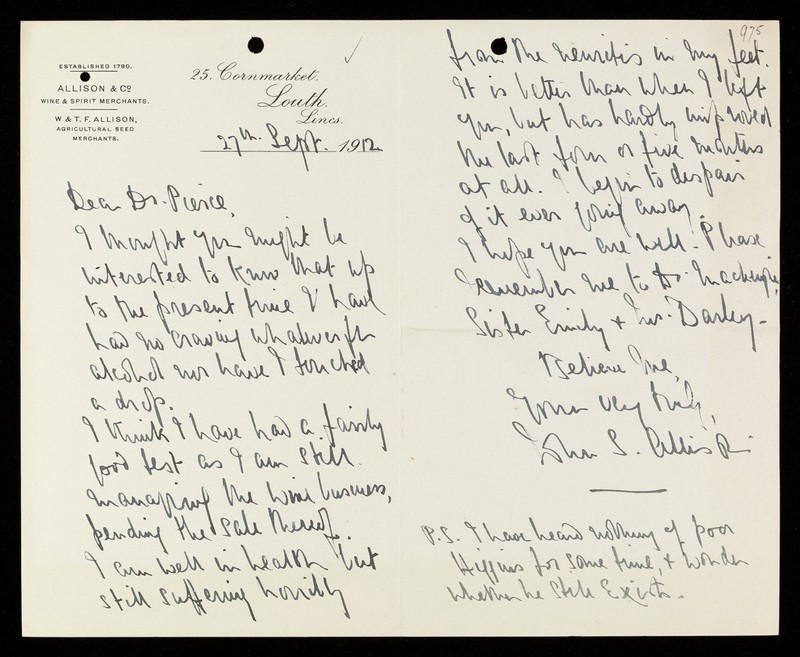 ESTABLISHED 1790.
ALLISON & Co
WINE & SPIRIT MERCHANTS.
W & T. F. ALLISON,
AGRICULTURAL SEED
MERCHANTS.
25. Cornmarket.
Louth.
Lincs.
27th. Sept. 1912
Dear Dr. Pierce,
I thought you might be
interested to know that up
to the present time I have
had no craving whatever for
alcohol nor have I touched
a drop.
I think I have had a fairly
good test as I am still
managing the wine business,
pending the sale thereof.
I am well in health but
still suffering horribly
975
from the neuritis in my feet.
It is better than when I left
you, but has hardly improved
the last four or five months
at all. I begin to despair
of it ever going away.
I hope you are well. Please
remember me to Dr. Mackenzie,
Sister Emily & Mrs. Darley -
Believe me,
Yours very truly,
John S. Allison
P.S. I have heard nothing of poor
Higgins for some time, & wonder
whether he still exists.